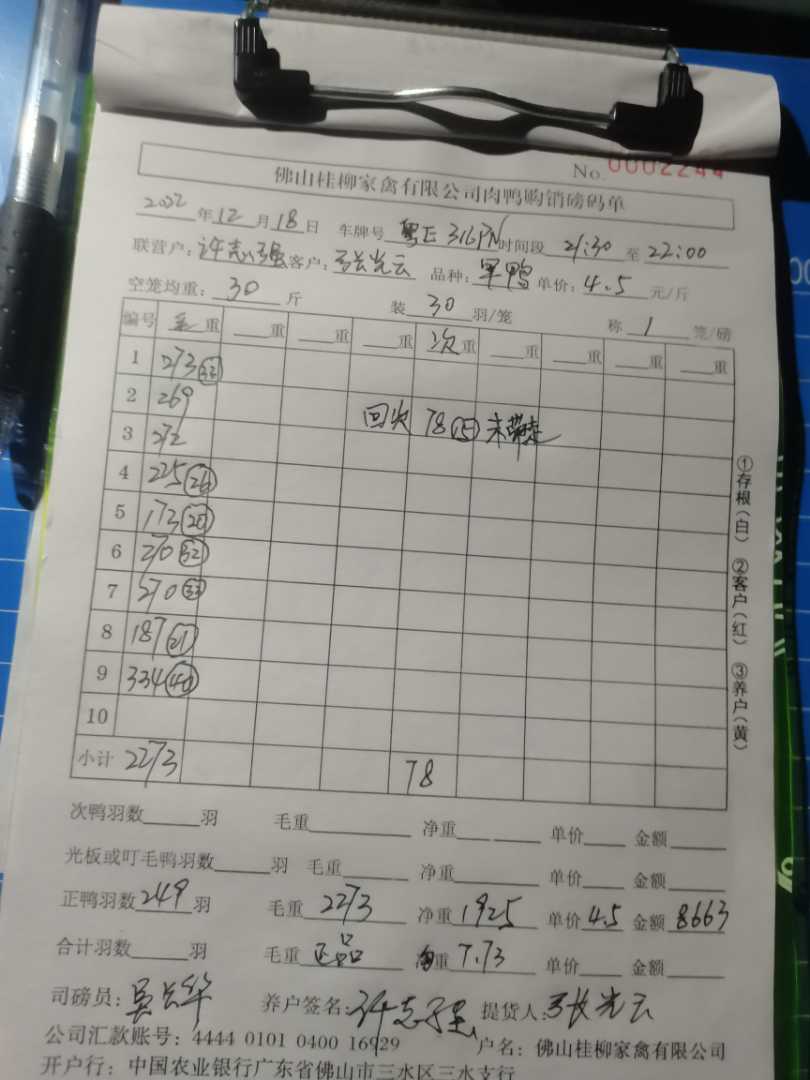 No. 0002244
佛山桂柳家禽有限公司肉鸭购销磅码单
2022年12月18日 车牌号 粤E 316PN 时间段 21:30 至 22:00
联营户：许志强 客户：张光云 品种：军鸭 单价：4.5 元/斤
空笼均重：30 斤 装 30 羽/笼 称 1 笼/磅
编号 毛重 重 重 重 次重 重 重 重 重
1 273 33
2 269 回次 78 15 未带走
3 272
4 225 26
5 173 20
6 270 32
7 270 33
8 187 21
9 334 40
10
小计 2273 78
次鸭羽数 羽 毛重 净重 单价 金额
光板或叮毛鸭羽数 羽 毛重 净重 单价 金额
正鸭羽数 249 羽 毛重 2273 净重 1925 单价 4.5 金额 8663
合计羽数 羽 毛重 正品 重 7.73 单价 金额
司磅员：吴兴华 养户签名：许志强 提货人：张光云
公司汇款账号：4444 0101 0400 16929 户名：佛山桂柳家禽有限公司
开户行：中国农业银行广东省佛山市三水区三水支行
①存根（白） ②客户（红） ③养户（黄）